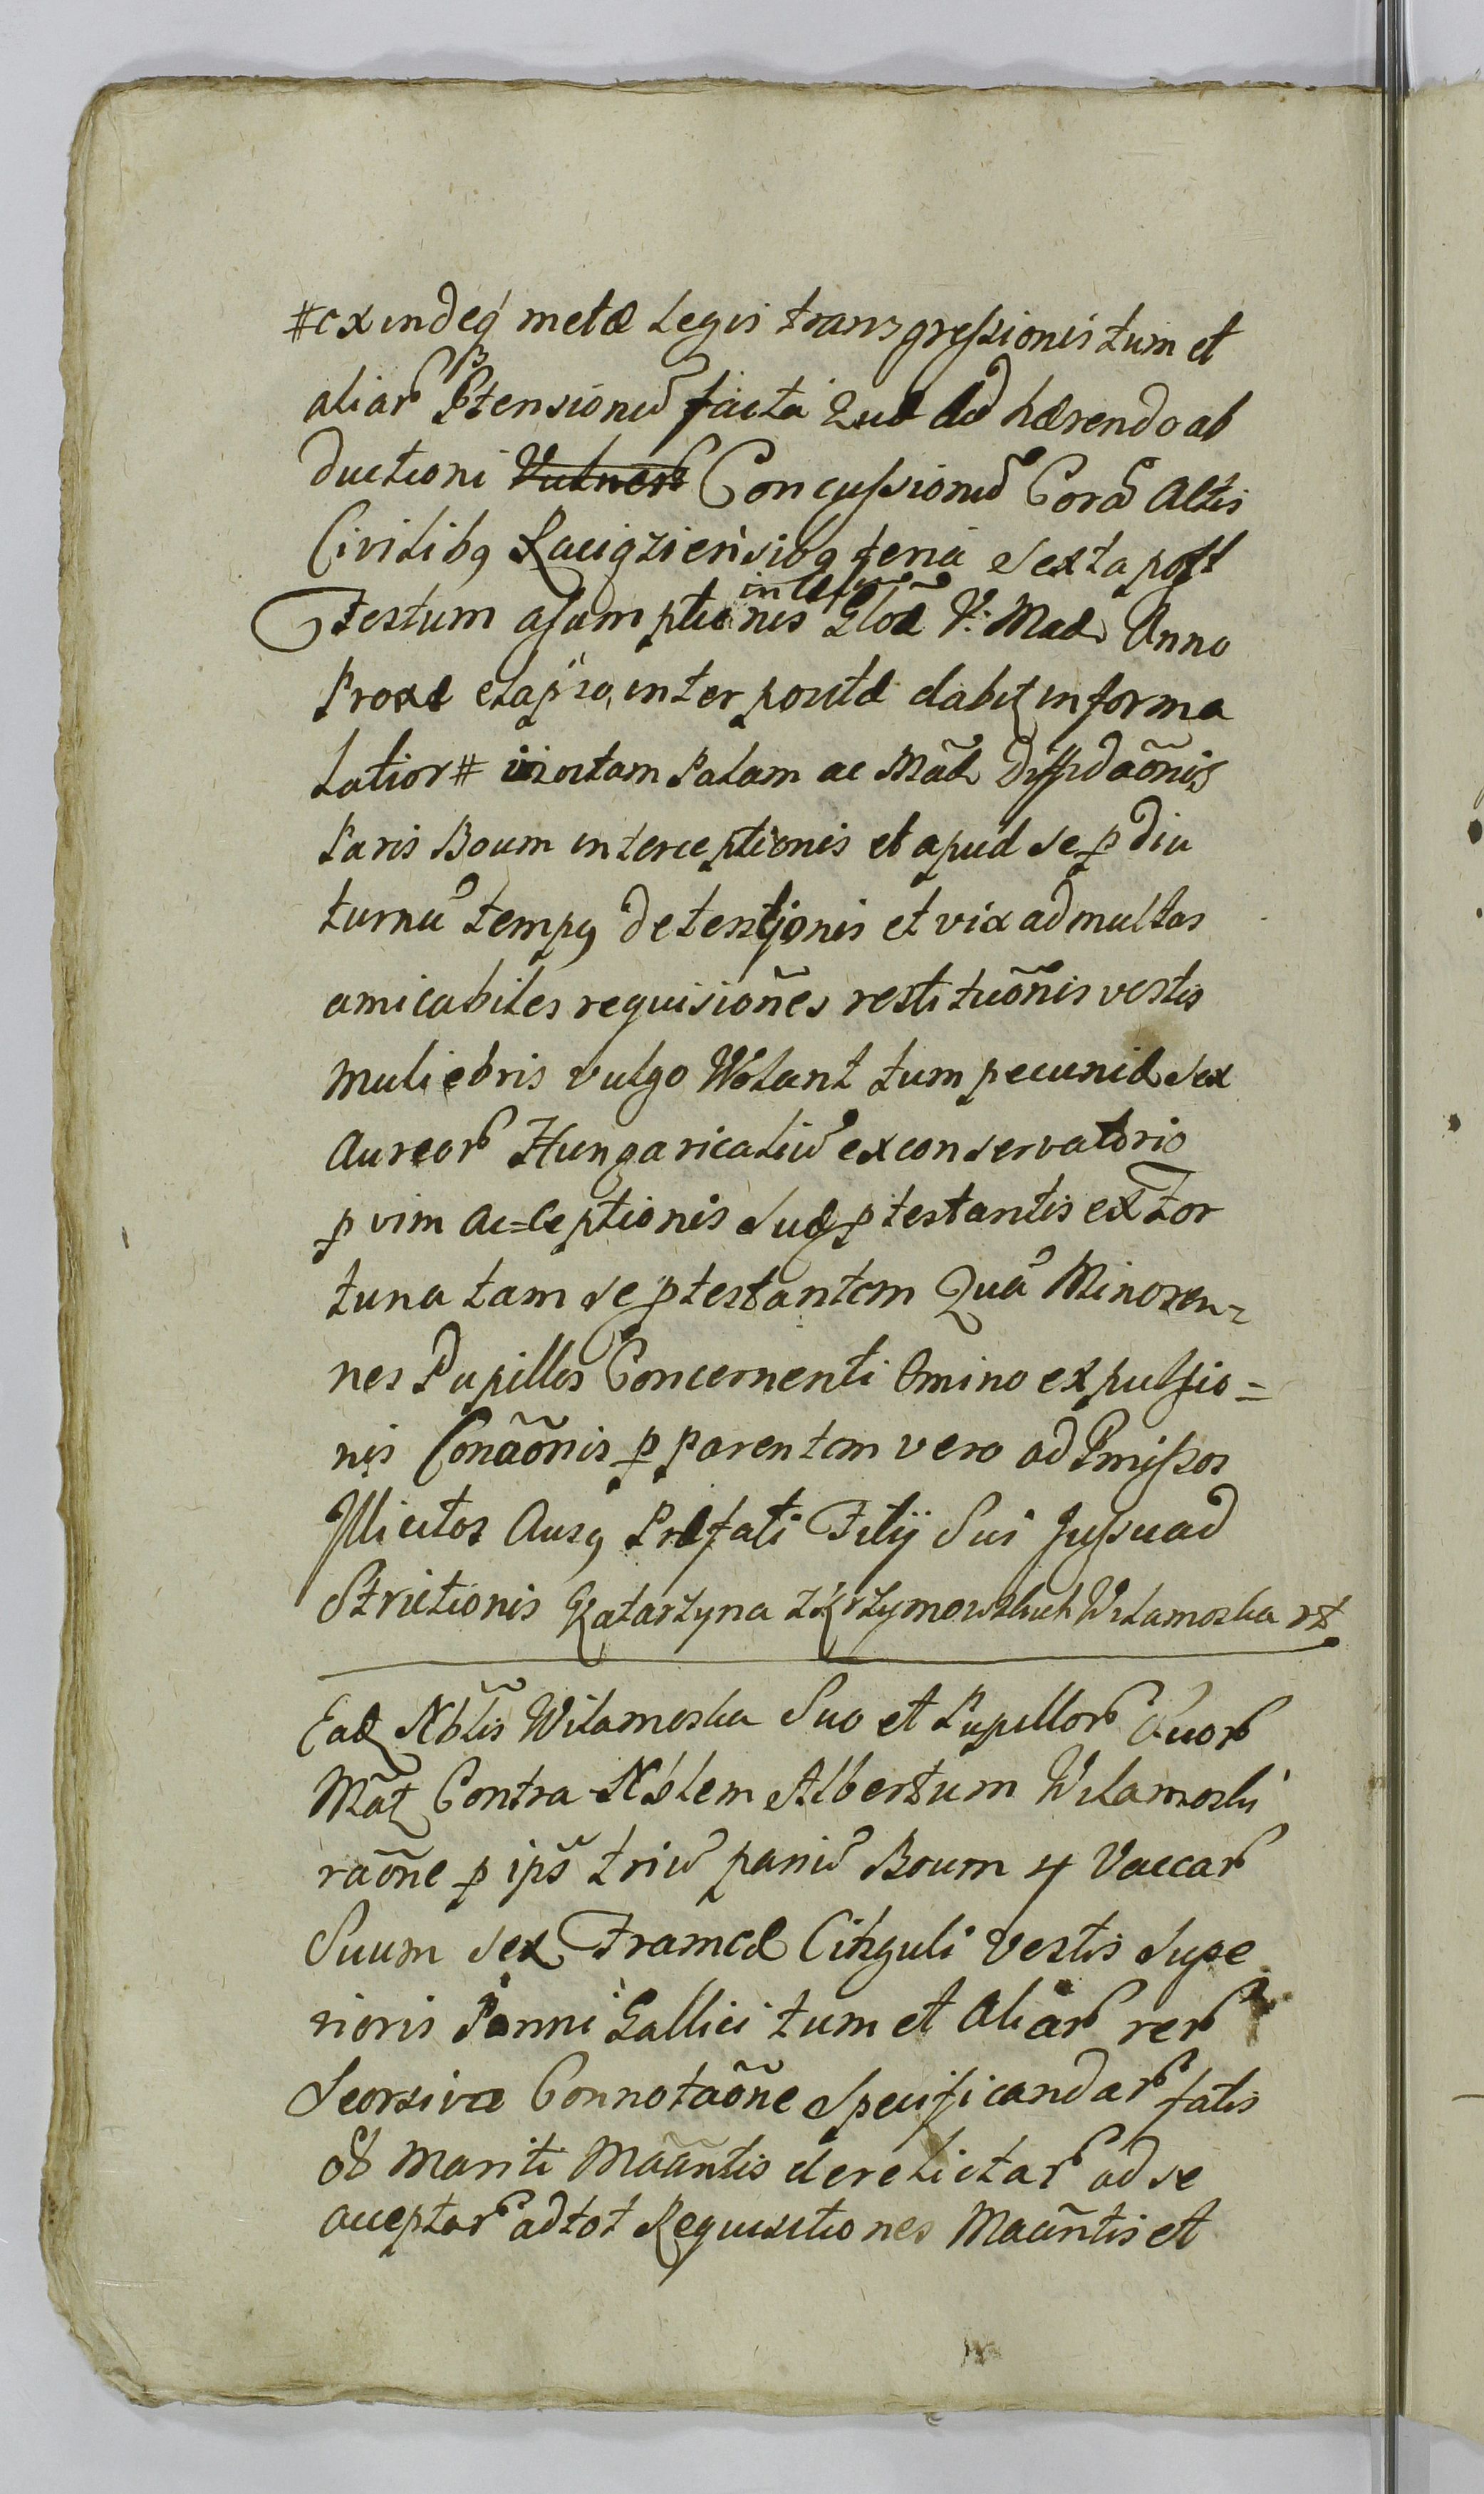 #exindeq metæ Legis transgressionis tum et
aliar Ptensionũ facta Quæ ad hærendo ab
ductioni Vulner Concussionũ Corã Actis
Civilibq Raciązien̄sibq feria Sexta post
Festum assumptionis in cælum Gloæ V: Mariæ Anno
Proxe elapso, interpositæ dabit in forma
Latior # insortam Palam ac Mãl Diffidaõnis
Paris Boum interceptionis et apud se p diu
turnũ tempq detentionis et vix ad multas
amicabiles requisiõnes restituõnis vestis
Muliebris vulgo Wolant tum pecuniæ Sex
Aureor Hungaricaliũ ex conservatorio
p vim Ac=ceptionis Suæ ptestantis ex For
tuna tam se ptestantem Quã Minoren=
nes Pupillos Concernenti Omino expulsio=
nis Conãonis p parentem vero ad Pmissos
Illicitos Ausq Præfati Filij Sui Jussu ad
Strictionis Katarzyna z Krzymowskich Wilamoska
Eadz Nblis Wilamoska Suo et Pupillor Suor
Mãz Contra Nblem Albertum Wilamoski
raõne p ips triũ pariũ Boum 4 Vaccar
Suum sex Frameæ Cinguli Vestis Supe
rioris Panni Gallici tum et Aliar rer
Seorsiva Connotaõne Specificandar fatis
ob Mariti Maãntis derelictar ad se
acceptar ad tot Requisitiones Maãntis et